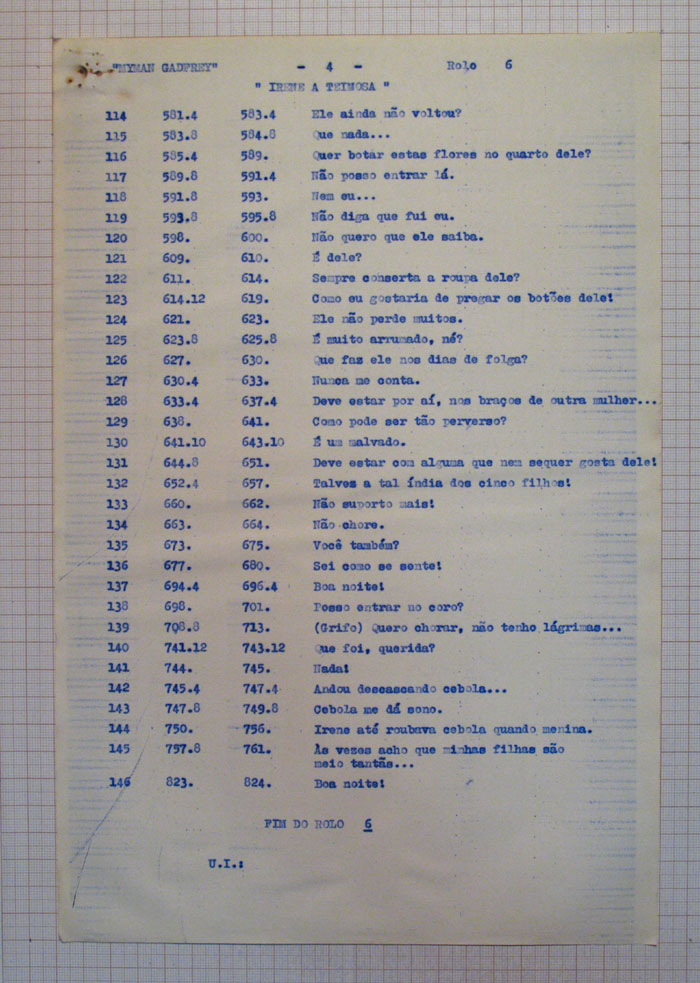 "MYMAN GADFREY" - 4 - Rolo 6
" IRENE A TEIMOSA "
114 581.4 583.4 Ele ainda não voltou?
115 583.8 584.8 Que nada...
116 585.4 589. Quer botar estas flores no quarto dele?
117 589.8 591.4 Não posso entrar lá.
118 591.8 593. Nem eu...
119 593.8 595.8 Não diga que fui eu.
120 598. 600. Não quero que ele saiba.
121 609. 610. É dele?
122 611. 614. Sempre conserta a roupa dele?
123 614.12 619. Como eu gostaria de pregar os botões dele!
124 621. 623. Ele não perde muitos.
125 623.8 625.8 É muito arrumado, né?
126 627. 630. Que faz ele nos dias de folga?
127 630.4 633. Nunca me conta.
128 633.4 637.4 Deve estar por aí, nos braços de outra mulher...
129 638. 641. Como pode ser tão perverso?
130 641.10 643.10 É um malvado.
131 644.8 651. Deve estar com alguma que nem sequer gosta dele!
132 652.4 657. Talves a tal índia dos cinco filhos!
133 660. 662. Não suporto mais!
134 663. 664. Não chore.
135 673. 675. Você também?
136 677. 680. Sei como se sente!
137 694.4 696.4 Boa noite!
138 698. 701. Posso entrar no coro?
139 708.8 713. (Grifo) Quero chorar, não tenho lágrimas...
140 741.12 743.12 Que foi, querida?
141 744. 745. Nada!
142 745.4 747.4 Andou descascando cebola...
143 747.8 749.8 Cebola me dá sono.
144 750. 756. Irene até roubava cebola quando menina.
145 757.8 761. Às vezes acho que minhas filhas são
meio tantãs...
146 823. 824. Boa noite!
FIM DO ROLO 6
U.I.: